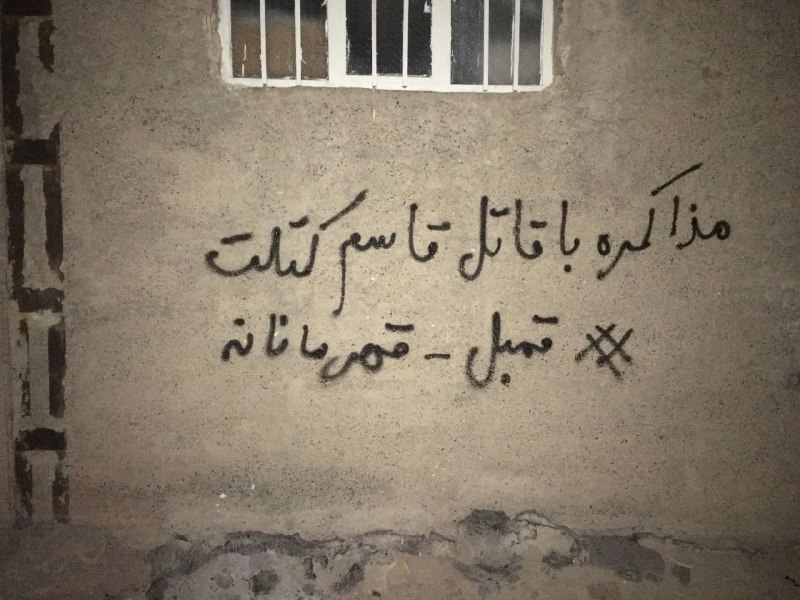 مذاکره با قاتل قاسم کتلت
# قمبل - قهرمانانه